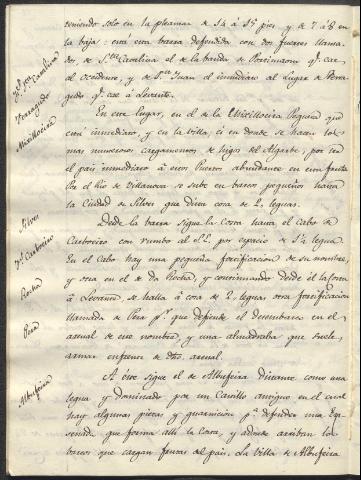 teniendo solo en la pleamar de 14 á 15 pies, y de 7 á 8 en
la baja: está esta barra defendida con dos fuertes llama-
dos de Sta. Catalina el de la banda de Portimaon q.e cae
al Occidente, y de Sn. Juan el inmediato al Lugar de Ferra-
gudo q.e cae á Levante.
En este lugar, en el de la Mexilloeira Pequeña que
está inmediato, y en la villa, es en donde se hacen los
mas numerosos cargamentos de higos del Algarbe, por ser
el pais inmediato á estos Puertos abundante en esta fruta.
Por el Rio de Villanova se sube en barcos pequeños hasta
la Ciudad de Silves que dista cosa de 2 leguas.
Desde la barra sigue la Costa hasta el Cabo de
Carboeiro con rumbo al por espacio de 1½ legua.
En el Cabo hay una pequeña fortificacion de su nombre,
y otra en el de da Rocha, y continuando desde él la Costa
á Levante, se halla á cosa de 2 leguas otra fortificacion
llamada de Pera p.a que defiende el desembarco en el
arenal de este nombre, y una almadraba que suele
armar enfrente de dho. arenal.
A éste sigue el de Albufeira distante como una
legua y dominado por un Castillo antiguo en el cual
hay algunas piezas y guarnicion p.a defender una En-
senada que forma alli la Costa, y adonde arriban los
barcos que cargan frutas del pais. La Villa de Albufeira
Sta. Catalina
Ferragudo
Mexilloeira
Silves
Carboeiro
Rocha
Pera
Albufeira